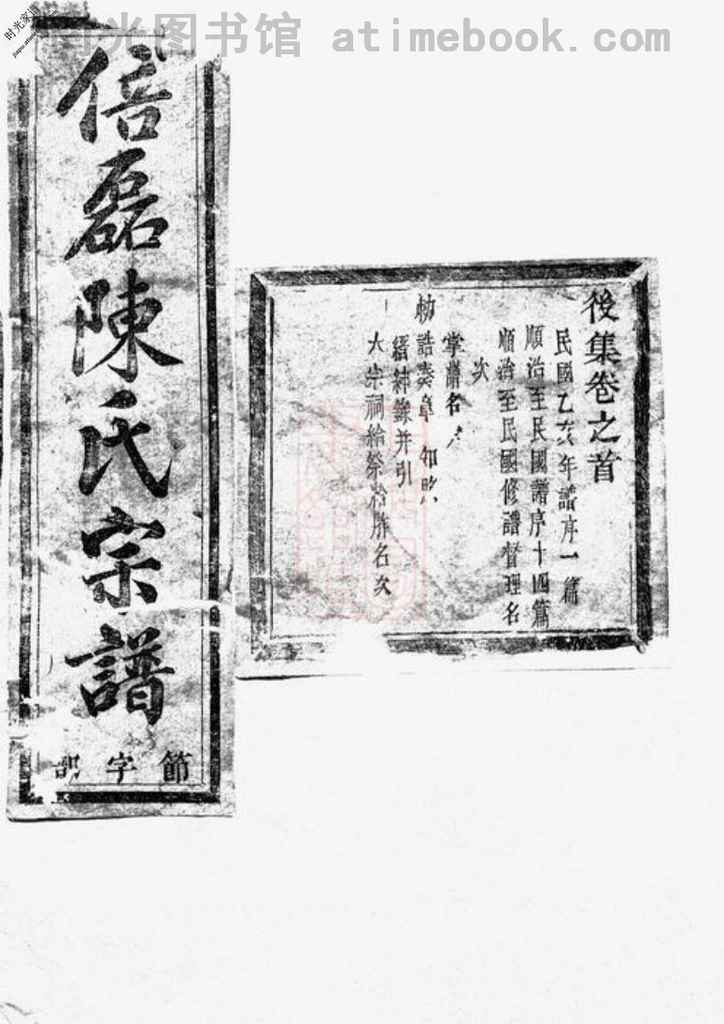 时光图书馆 atimebook.com
倍磊陳氏宗譜
節字號
後集卷之首
民國乙亥年譜序一篇
順治至民國譜序十四篇
順治至民國修譜督理名
次
掌譜名
勅誥奏章
縉紳錄并引
大宗祠給祭 名次